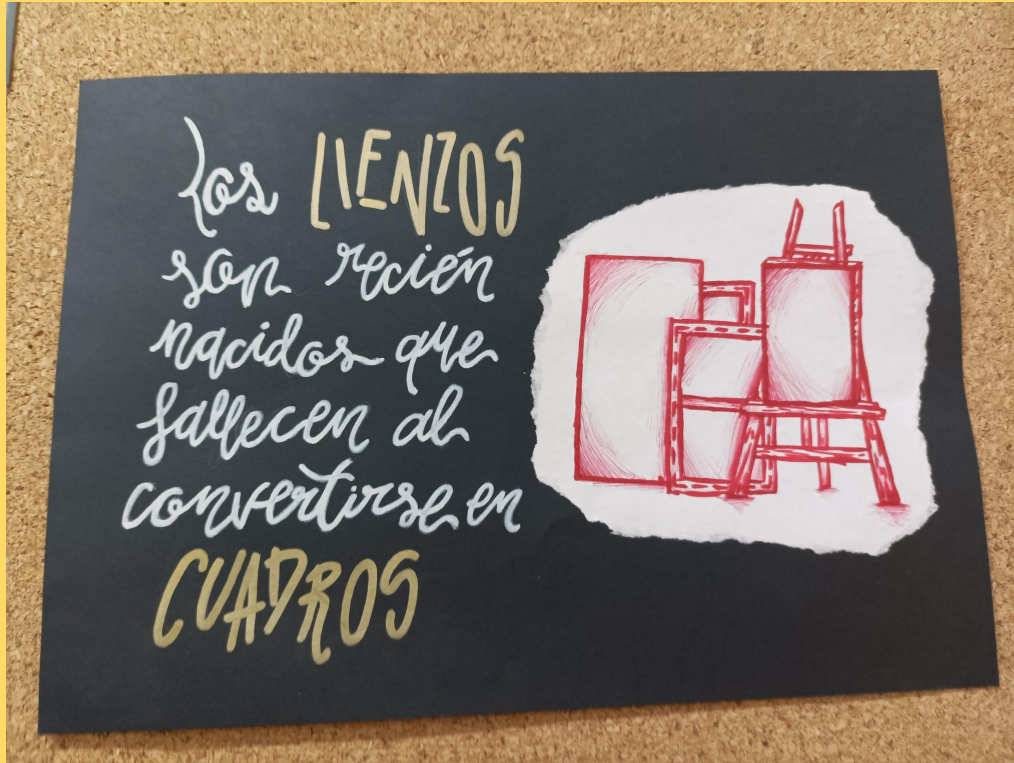 Los LIENZOS
son recién
nacidos que
fallecen al
convertirse en
CUADROS